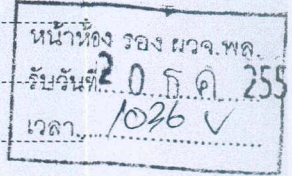 หน้าห้อง รอง ผวจ.พล.
รับวันที่ 20 ธ.ค. 255
เวลา 1036